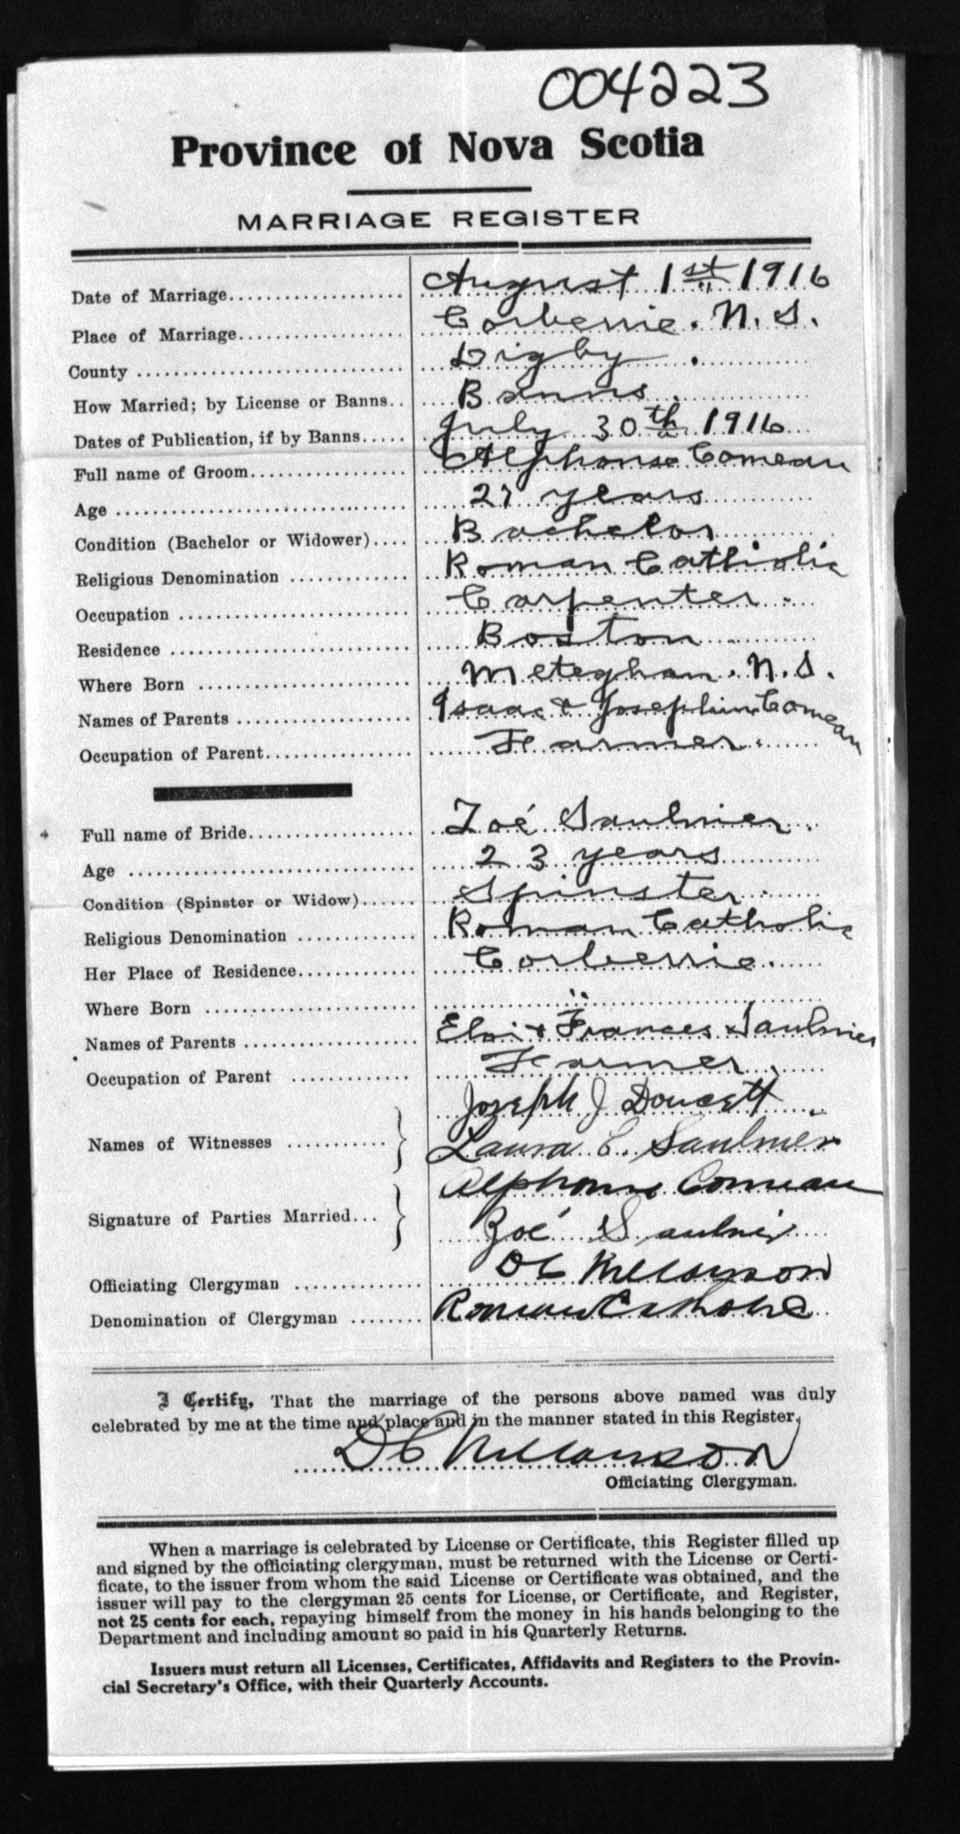 004223
Province of Nova Scotia
MARRIAGE REGISTER
Date of Marriage.................... August 1st 1916
Place of Marriage.................... Corberrie. N. S.
County .................... Digby.
How Married; by License or Banns.. Banns.
Dates of Publication, if by Banns..... July 30th 1916
Full name of Groom.................... Alphonse Comeau
Age .................... 27 years
Condition (Bachelor or Widower).... Bachelor
Religious Denomination .................... Roman Catholic
Occupation .................... Carpenter.
Residence .................... Boston
Where Born .................... Meteghan. N. S.
Names of Parents .................... Isaac & Josephine Comeau
Occupation of Parent.................... Farmer.
Full name of Bride.................... Zoé Saulnier.
Age .................... 23 years
Condition (Spinster or Widow)...... Spinster.
Religious Denomination .................... Roman Catholic
Her Place of Residence.................... Corberrie.
Where Born .................... "
Names of Parents .................... Eloi & Frances Saulnier
Occupation of Parent .................... Farmer.
Joseph J Doucett
Names of Witnesses ........... } Laura E. Saulnier
Alphonse Comeau
Signature of Parties Married... } Zoé Saulnier
Officiating Clergyman .............. D C Mellanson
Denomination of Clergyman ........ Roman Catholic
I Certify, That the marriage of the persons above named was duly
celebrated by me at the time and place and in the manner stated in this Register.
D C Mellanson
Officiating Clergyman.
When a marriage is celebrated by License or Certificate, this Register filled up
and signed by the officiating clergyman, must be returned with the License or Certi-
ficate, to the issuer from whom the said License or Certificate was obtained, and the
issuer will pay to the clergyman 25 cents for License, or Certificate, and Register,
not 25 cents for each, repaying himself from the money in his hands belonging to the
Department and including amount so paid in his Quarterly Returns.
Issuers must return all Licenses, Certificates, Affidavits and Registers to the Provin-
cial Secretary's Office, with their Quarterly Accounts.